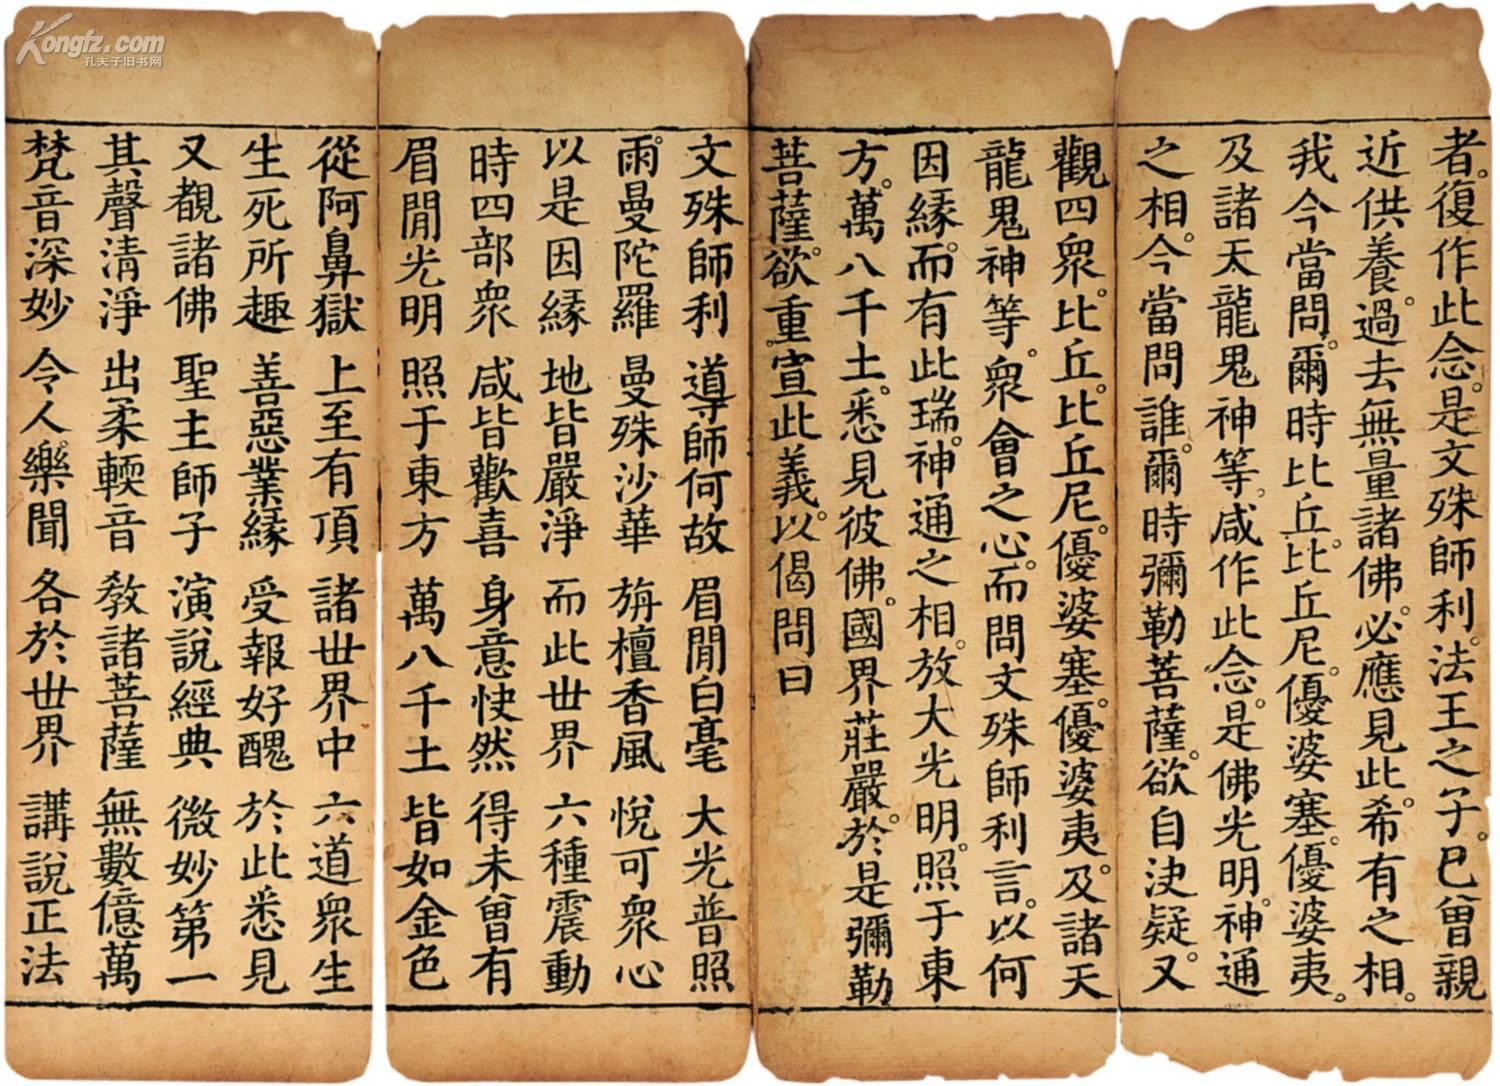 者。復作此念。是文殊師利。法王之子。已曾親
近供養。過去無量諸佛。必應見此。希有之相。
我今當問。爾時比丘。比丘尼。優婆塞。優婆夷。
及諸天龍鬼神等。咸作此念。是佛光明。神通
之相。今當問誰。爾時彌勒菩薩。欲自决疑。又
觀四衆。比丘。比丘尼。優婆塞。優婆夷。及諸天
龍鬼神等。衆會之心。而問文殊師利言。以何
因緣。而有此瑞。神通之相。放大光明。照于東
方。萬八千土。悉見彼佛。國界莊嚴。於是彌勒
菩薩。欲重。宣此義。以偈問曰
文殊師利 導師何故 眉閒白毫 大光普照
雨。曼陀羅 曼殊沙華 旃檀香風 悅可衆心
以是因緣 地皆嚴淨 而此世界 六種震動
時四部衆 咸皆歡喜 身意快然 得未曾有
眉閒光明 照于東方 萬八千土 皆如金色
從阿鼻獄 上至有頂 諸世界中 六道衆生
生死所趣 善惡業緣 受報好醜 於此悉見
又覩諸佛 聖主師子 演說經典 微妙第一
其聲清淨 出柔輭音 敎諸菩薩 無數億萬
梵音深妙 令人。樂聞 各於世界 講說正法
Kongfz.com
孔夫子旧书网